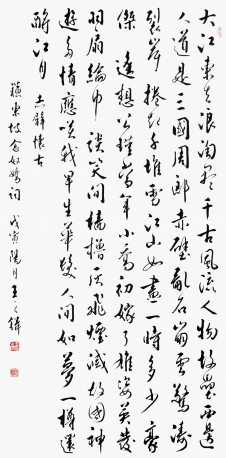 大江東去浪淘盡千古風流人物故壘西邊
人道是三國周郎赤壁亂石崩雲驚濤
裂岸捲起千堆雪江山如畫一時多少豪
傑遙想公瑾當年小喬初嫁了雄姿英發
羽扇綸巾談笑間檣櫓灰飛煙滅故國神
遊多情應笑我早生華髮人間如夢一樽還
酹江月 赤壁懷古
蘇東坡念奴嬌詞 戊寅陽月王